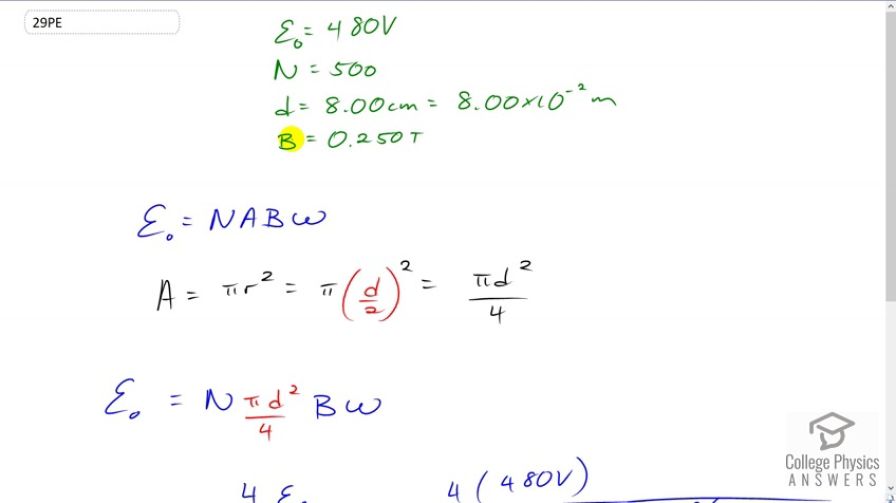 29PE
ε₀ = 480V
N = 500
d = 8.00cm = 8.00×10⁻² m
B = 0.250T
ε₀ = NABω
A = πr² = π(d/2)² = πd²/4
ε₀ = N πd²/4 Bω
4 ε₀ 4 (480V)
College Physics
ANSWERS